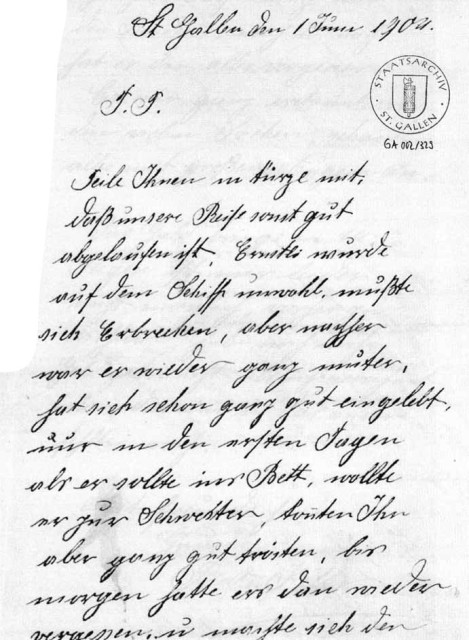 St. Gallen den 1 Juni 1902.
STAATSARCHIV
ST. GALLEN
GA 002/323
T. T.
Teile Ihnen in kürze mit,
daß unsere Reise sonst gut
abgelaufen ist. Ernstli wurde
auf dem Schiff unwohl, mußte
sich Erbrechen, aber nachher
war er wieder ganz munter,
hat sich schon ganz gut eingelebt,
nur in den ersten Tagen
als er sollte ins Bett, wollte
er zur Schwester, konten Ihn
aber ganz gut trösten, bis
morgen hatte ers dan wieder
vergessen, u machte sich den